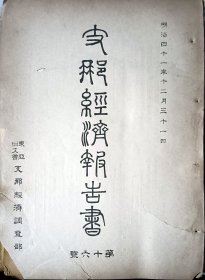 明治四十一年十二月三十一日
支那經濟報告書
第十六號
東亞同文會
支那經濟調査部